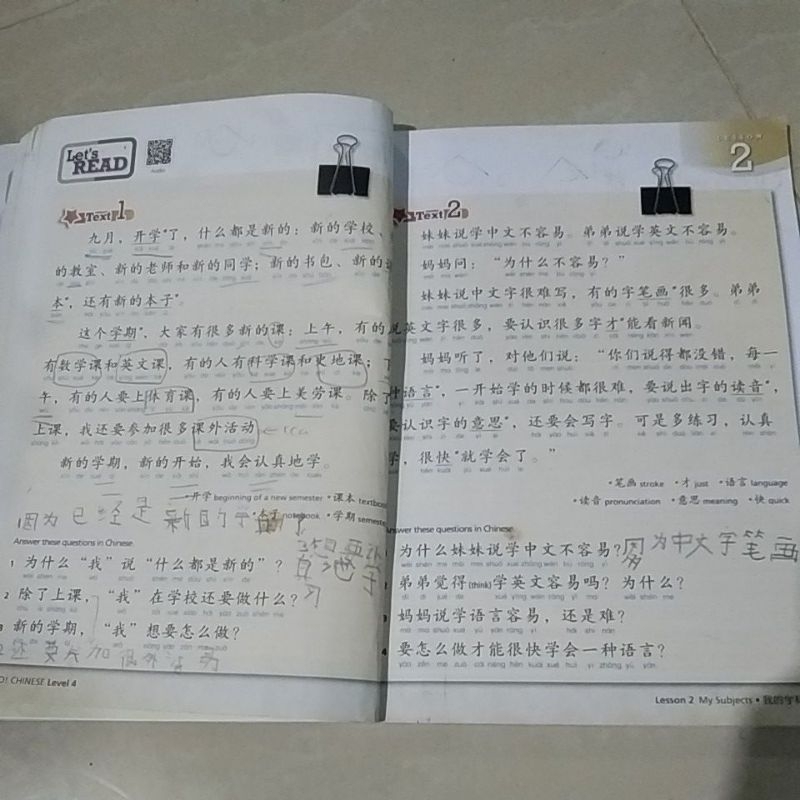 Let's READ
Audio
Text 1
九月，开学*了，什么都是新的：新的学校、
的教室、新的老师和新的同学；新的书包、新的
本*，还有新的本子*。
这个学期*，大家有很多新的课：上午，有的
有数学课和英文课，有的人有科学课和史地课；下
午，有的人要上体育课，有的人要上美劳课。除了
上课，我还要参加很多课外活动
cca
新的学期，新的开始，我会认真地学。
开学 beginning of a new semester • 课本 textbook
本子 notebook • 学期 semester
因为已经是新的学期了
Answer these questions in Chinese.
1 为什么“我”说“什么都是新的”？
2 除了上课，“我”在学校还要做什么？
3 新的学期，“我”想要怎么做？
真地学
习
还要参加课外活动
GO! CHINESE Level 4
LESSON 2
Text 2
妹妹说学中文不容易。弟弟说学英文不容易。
妈妈问：“为什么不容易？”
妹妹说中文字很难写，有的字笔画*很多。弟弟
说英文字很多，要认识很多字才*能看新闻。
妈妈听了，对他们说：“你们说得都没错，每一
种语言*，一开始学的时候都很难，要说出字的读音*，
要认识字的意思*，还要会写字。可是多练习，认真
学，很快*就学会了。”
• 笔画 stroke • 才 just • 语言 language
• 读音 pronunciation • 意思 meaning • 快 quick
Answer these questions in Chinese.
1 为什么妹妹说学中文不容易？
因为中文字笔画
2 弟弟觉得(think)学英文容易吗？为什么？
3 妈妈说学语言容易，还是难？
4 要怎么做才能很快学会一种语言？
Lesson 2 My Subjects • 我的学科